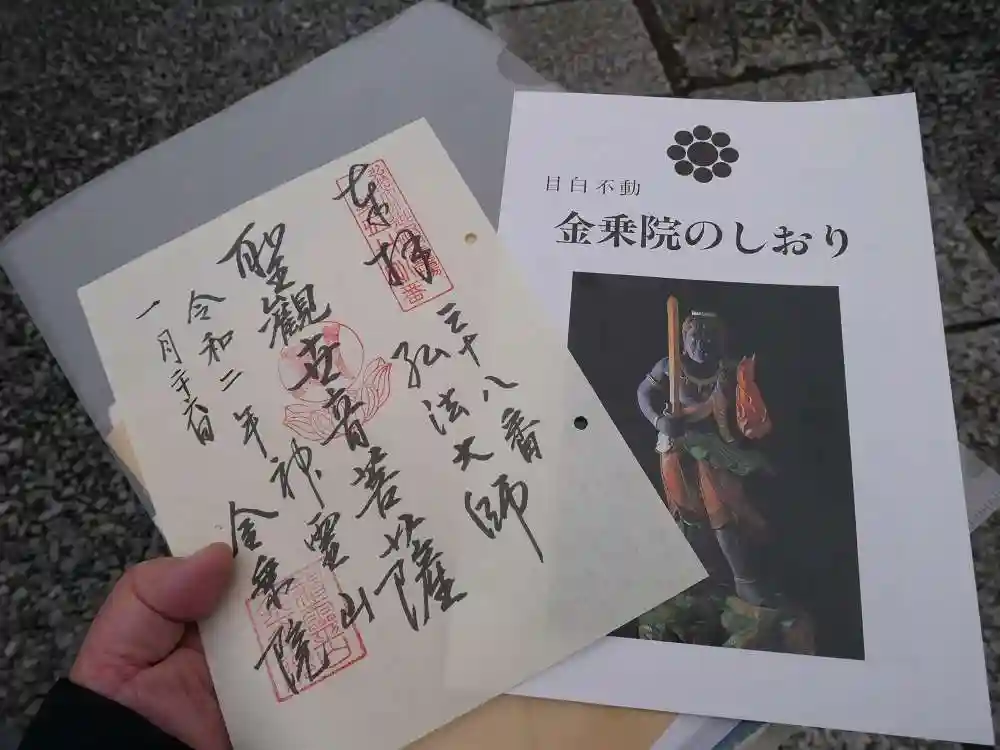 奉拝
三十八番
弘法大師
聖觀世音菩薩
神靈山
金乗院
令和二年
一月二十六日
目白不動
金乗院のしおり